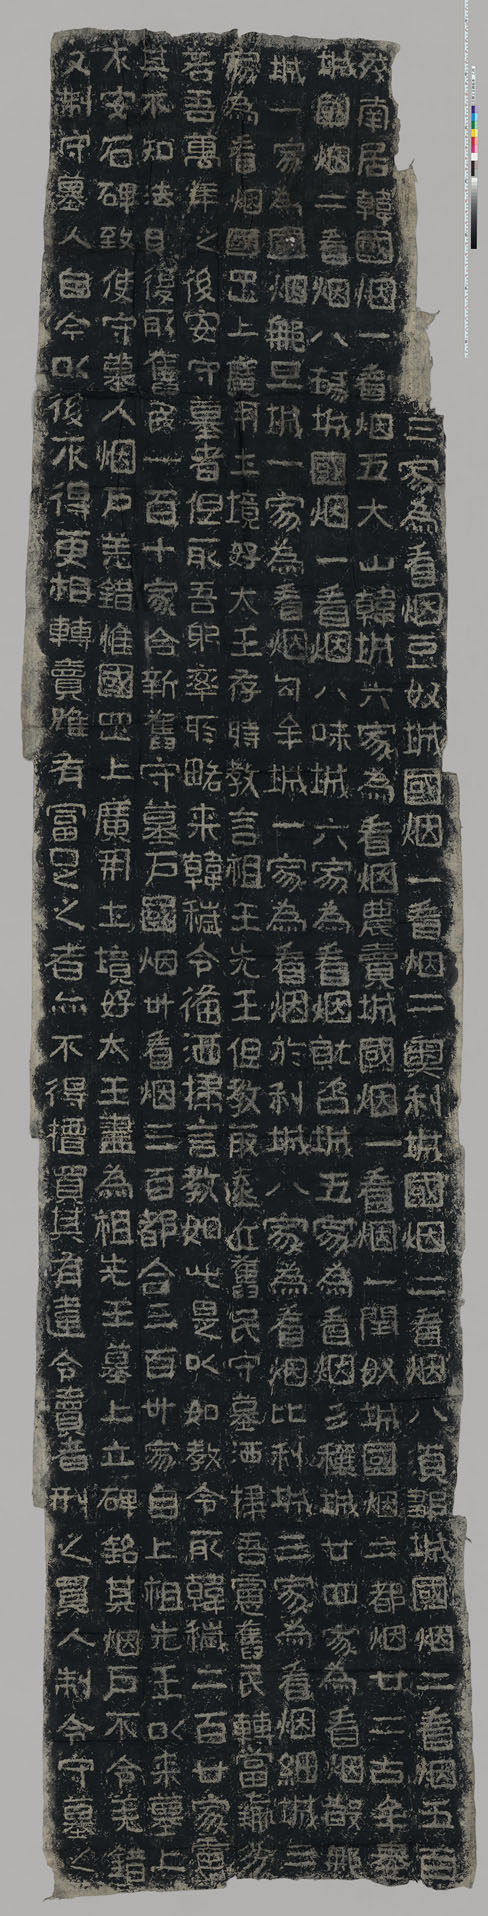 三家為看烟豆奴城國烟一看烟二奧利城國烟二看烟八須鄒城國烟二看烟五百
残南居韓國烟一看烟五大山韓城六家為看烟農賣城國烟一看烟一閏奴城國烟二都烟廿二古牟婁
城國烟二看烟八瑑城國烟一看烟八味城六家為看烟就咨城五家為看烟彡穰城廿四家為看烟散那
城一家為國烟那旦城一家為看烟句牟城一家為看烟於利城八家為看烟比利城三家為看烟細城三
家為看烟國罡上廣開土境好太王存時教言祖王先王但教取遠近舊民守墓洒掃吾慮舊民轉當羸劣
若吾萬年之後安守墓者但取吾躬率所略来韓穢令備洒掃言教如此是以如教令取韓穢二百廿家慮
其不知法則復取舊民一百十家合新舊守墓戶國烟卅看烟三百都合三百卅家自上祖先王以来墓上
不安石碑致使守墓人烟戶羌錯惟國罡上廣開土境好太王盡為祖先王墓上立碑銘其烟戶不令羌錯
又制守墓人自今以後不得更相轉賣雖有富足之者亦不得擅買其有違令賣者刑之買人制令守墓之